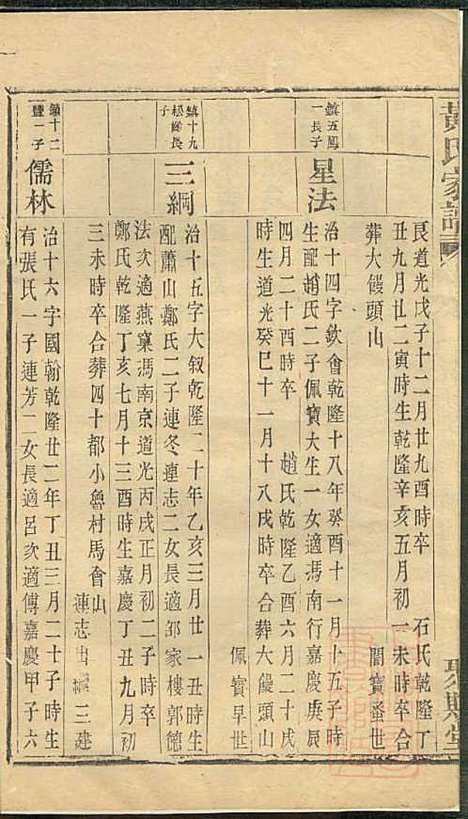 黃氏家譜
聚斯堂
艮道光戊子十二月廿九酉時卒 石氏乾隆丁
丑九月廿二寅時生乾隆辛亥五月初一未時卒合
葬大饅頭山 閣寶蚤世
鎮五鳳
一長子
星法
治十四字欽會乾隆十八年癸酉十一月十五子時
生配趙氏二子佩寶大生一女適馮南行嘉慶庚辰
四月二十酉時卒 趙氏乾隆乙酉六月二十戌
時生道光癸巳十一月十八戌時卒合葬大饅頭山
佩寶早世
鎮十九
松齡長
子
三綱
治十五字大叙乾隆二十年乙亥三月廿一丑時生
配蕭山鄭氏二子連冬連志二女長適邹家樓郭德
法次適燕窠馮南京道光丙戌正月初二子時卒
鄭氏乾隆丁亥七月十三酉時生嘉慶丁丑九月初
三未時卒合葬四十都小魯村馬會山
連志出嫲三建
鎮十二
豐一子
儒林
治十六字國翰乾隆廿二年丁丑三月二十子時生
有張氏一子連芳二女長適呂次適傅嘉慶甲子六